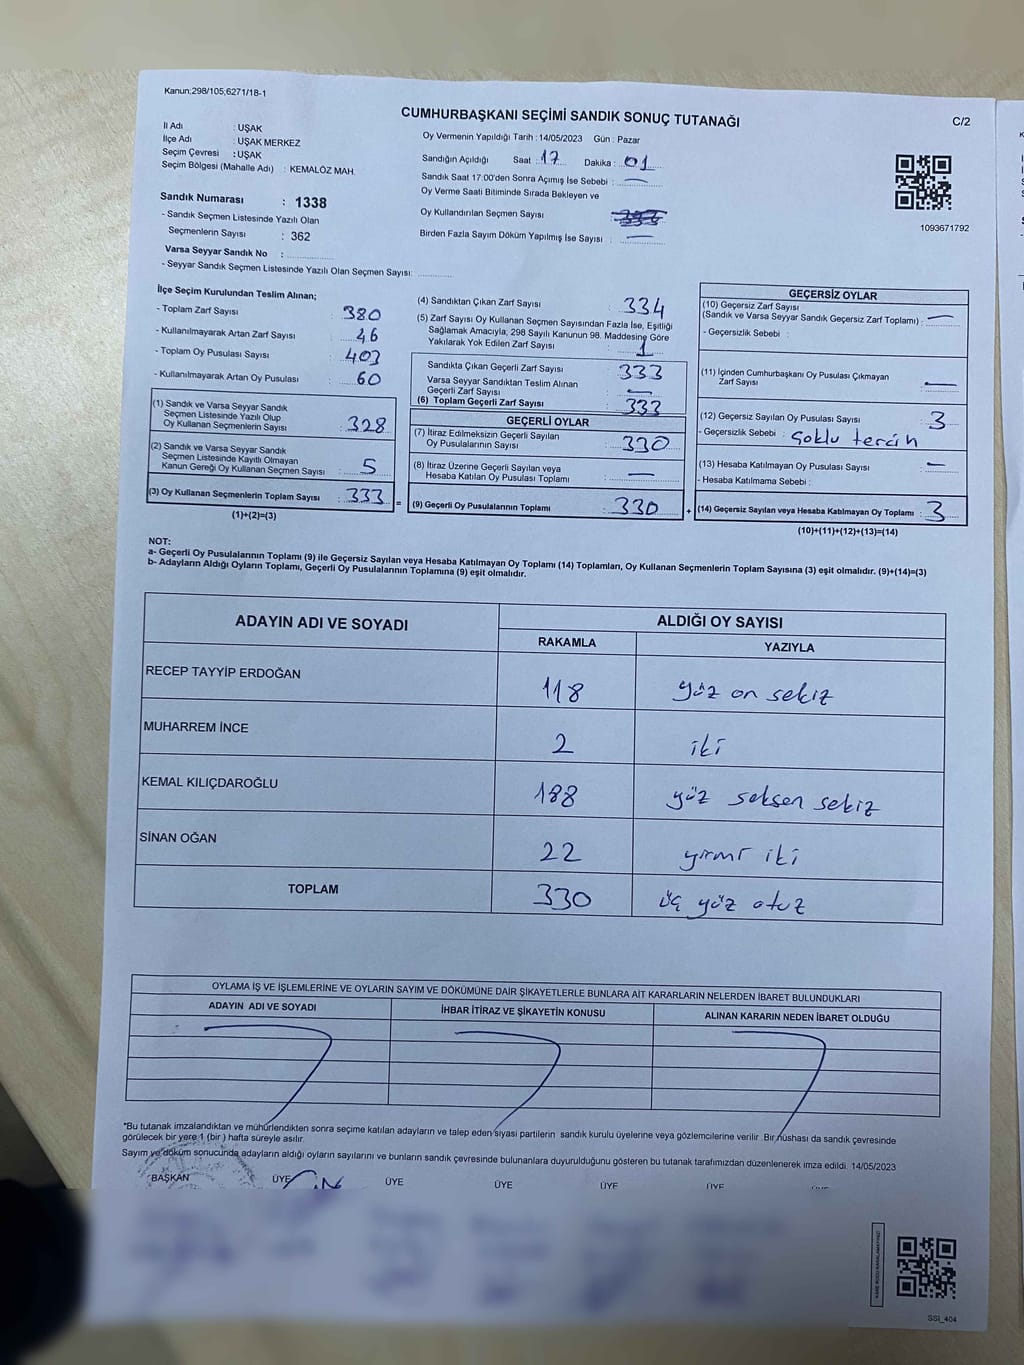 Kanun;298/105;6271/18-1
CUMHURBAŞKANI SEÇİMİ SANDIK SONUÇ TUTANAĞI
C/2
İl Adı : UŞAK
İlçe Adı : UŞAK MERKEZ
Seçim Çevresi : UŞAK
Seçim Bölgesi (Mahalle Adı) : KEMALÖZ MAH.
Oy Vermenin Yapıldığı Tarih : 14/05/2023 Gün : Pazar
Sandığın Açıldığı Saat : 17 Dakika : 01
Sandık Saat 17:00'den Sonra Açımış İse Sebebi : —
Oy Verme Saati Bitiminde Sırada Bekleyen ve
Oy Kullandırılan Seçmen Sayısı
Birden Fazla Sayım Döküm Yapılmış İse Sayısı : —
1093671792
Sandık Numarası : 1338
- Sandık Seçmen Listesinde Yazılı Olan
Seçmenlerin Sayısı : 362
Varsa Seyyar Sandık No :
- Seyyar Sandık Seçmen Listesinde Yazılı Olan Seçmen Sayısı:
İlçe Seçim Kurulundan Teslim Alınan;
- Toplam Zarf Sayısı : 380
- Kullanılmayarak Artan Zarf Sayısı : 46
- Toplam Oy Pusulası Sayısı : 403
- Kullanılmayarak Artan Oy Pusulası : 60
(1) Sandık ve Varsa Seyyar Sandık
Seçmen Listesinde Yazılı Olup
Oy Kullanan Seçmenlerin Sayısı : 328
(2) Sandık ve Varsa Seyyar Sandık
Seçmen Listesinde Kayıtlı Olmayan
Kanun Gereği Oy Kullanan Seçmen Sayısı : 5
(3) Oy Kullanan Seçmenlerin Toplam Sayısı : 333
(1)+(2)=(3)
(4) Sandıktan Çıkan Zarf Sayısı : 334
(5) Zarf Sayısı Oy Kullanan Seçmen Sayısından Fazla İse, Eşitliği
Sağlamak Amacıyla; 298 Sayılı Kanunun 98. Maddesine Göre
Yakılarak Yok Edilen Zarf Sayısı : 1
Sandıkta Çıkan Geçerli Zarf Sayısı : 333
Varsa Seyyar Sandıktan Teslim Alınan
Geçerli Zarf Sayısı : —
(6) Toplam Geçerli Zarf Sayısı : 333
GEÇERLİ OYLAR
(7) İtiraz Edilmeksizin Geçerli Sayılan
Oy Pusulalarının Sayısı : 330
(8) İtiraz Üzerine Geçerli Sayılan veya
Hesaba Katılan Oy Pusulası Toplamı : —
= (9) Geçerli Oy Pusulalarının Toplamı : 330
GEÇERSİZ OYLAR
(10) Geçersiz Zarf Sayısı
(Sandık ve Varsa Seyyar Sandık Geçersiz Zarf Toplamı) : —
- Geçersizlik Sebebi :
(11) İçinden Cumhurbaşkanı Oy Pusulası Çıkmayan
Zarf Sayısı : —
(12) Geçersiz Sayılan Oy Pusulası Sayısı : 3
- Geçersizlik Sebebi : Çoklu tercih
(13) Hesaba Katılmayan Oy Pusulası Sayısı : —
- Hesaba Katılmama Sebebi :
+ (14) Geçersiz Sayılan veya Hesaba Katılmayan Oy Toplamı : 3
(10)+(11)+(12)+(13)=(14)
NOT:
a- Geçerli Oy Pusulalarının Toplamı (9) ile Geçersiz Sayılan veya Hesaba Katılmayan Oy Toplamı (14) Toplamları, Oy Kullanan Seçmenlerin Toplam Sayısına (3) eşit olmalıdır. (9)+(14)=(3)
b- Adayların Aldığı Oyların Toplamı, Geçerli Oy Pusulalarının Toplamına (9) eşit olmalıdır.
ADAYIN ADI VE SOYADI ALDIĞI OY SAYISI
RAKAMLA YAZIYLA
RECEP TAYYİP ERDOĞAN 118 yüz on sekiz
MUHARREM İNCE 2 iki
KEMAL KILIÇDAROĞLU 188 yüz seksen sekiz
SİNAN OĞAN 22 yirmi iki
TOPLAM 330 üç yüz otuz
OYLAMA İŞ VE İŞLEMLERİNE VE OYLARIN SAYIM VE DÖKÜMÜNE DAİR ŞİKAYETLERLE BUNLARA AİT KARARLARIN NELERDEN İBARET BULUNDUKLARI
ADAYIN ADI VE SOYADI İHBAR İTİRAZ VE ŞİKAYETİN KONUSU ALINAN KARARIN NEDEN İBARET OLDUĞU
*Bu tutanak imzalandıktan ve mühürlendikten sonra seçime katılan adayların ve talep eden siyasi partilerin sandık kurulu üyelerine veya gözlemcilerine verilir. Bir nüshası da sandık çevresinde
görülecek bir yere 1 (bir ) hafta süreyle asılır.
Sayım ve döküm sonucunda adayların aldığı oyların sayılarını ve bunların sandık çevresinde bulunanlara duyurulduğunu gösteren bu tutanak tarafımızdan düzenlenerek imza edildi. 14/05/2023
BAŞKAN ÜYE ÜYE ÜYE ÜYE ÜYE
SSI_404